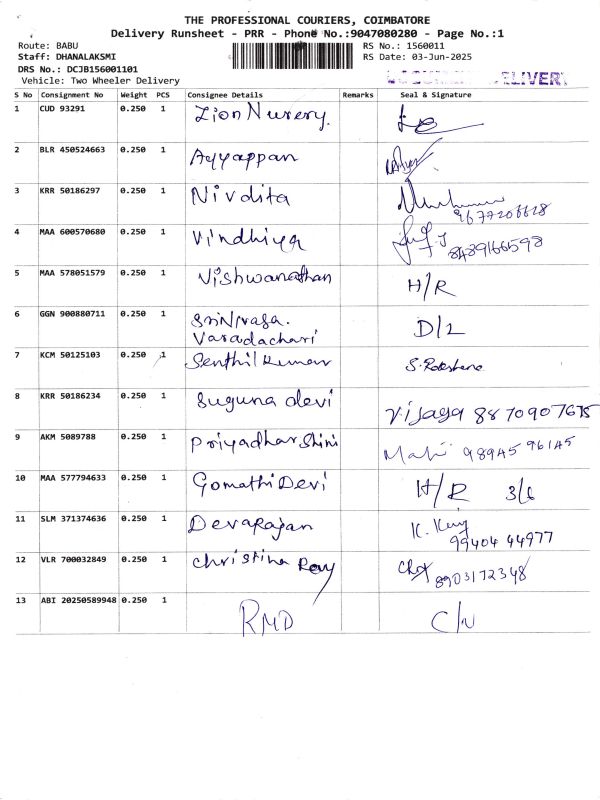 THE PROFESSIONAL COURIERS, COIMBATORE
Delivery Runsheet - PRR - Phone No.:9047080280 - Page No.:1
Route: BABU RS No.: 1560011
Staff: DHANALAKSMI RS Date: 03-Jun-2025
DRS No.: DCJB156001101
Vehicle: Two Wheeler Delivery DELIVERY
S No Consignment No Weight PCS Consignee Details Remarks Seal & Signature
1 CUD 93291 0.250 1 Zion Nursery.
2 BLR 450524663 0.250 1 Ayyappan
3 KRR 50186297 0.250 1 Nivdita
4 MAA 600570680 0.250 1 Vindhiya
8489166598
5 MAA 578051579 0.250 1 Vishwanathan H/R
6 GGN 900880711 0.250 1 Srinivasa. D/L
Varadachari
7 KCM 50125103 0.250 1 Senthil Kumar
8 KRR 50186234 0.250 1 Suguna devi Vijaya 8870907675
9 AKM 5089788 0.250 1 Priyadharshini 98945 96145
10 MAA 577794633 0.250 1 Gomathi Devi H/R 3/6
11 SLM 371374636 0.250 1 Devarajan
99404 44977
12 VLR 700032849 0.250 1 Christina Roy
8903172348
13 ABI 20250589948 0.250 1 RMD